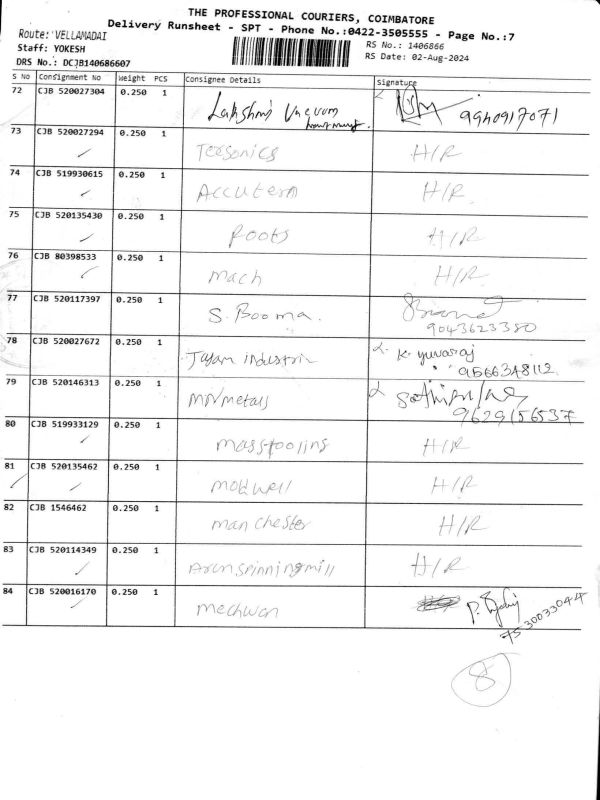 THE PROFESSIONAL COURIERS, COIMBATORE
Delivery Runsheet - SPT - Phone No.:0422-3505555 - Page No.:7
Route: VELLAMADAI
RS No.: 1406866
Staff: YOKESH
RS Date: 02-Aug-2024
DRS No.: DCJB140686607
S No Consignment No Weight PCS Consignee Details Signature
72 CJB 520027304 0.250 1 Lakshmi Vacuum 9940917071
73 CJB 520027294 0.250 1 Teesonics H/R
74 CJB 519930615 0.250 1 Accuterm H/R
75 CJB 520135430 0.250 1 Roots H/R
76 CJB 80398533 0.250 1 Mach H/R
77 CJB 520117397 0.250 1 S. Booma.
9043623380
78 CJB 520027672 0.250 1 Jayam industrin K. yuvaraj
9566348112
79 CJB 520146313 0.250 1 MNmetals
9629156537
80 CJB 519933129 0.250 1 masstooling H/R
81 CJB 520135462 0.250 1 moldwell H/R
82 CJB 1546462 0.250 1 manchester H/R
83 CJB 520114349 0.250 1 Arunspinningmill H/R
84 CJB 520016170 0.250 1 mechwan
7530033044
8